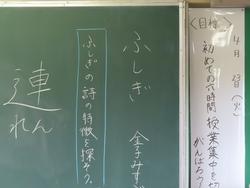 <目標>
4月 日(火)
初めての六時間授業集中を切
がんばろう
ふしぎ
金子みすゞ
ふしぎの詩の特徴を探そう。
連
れん